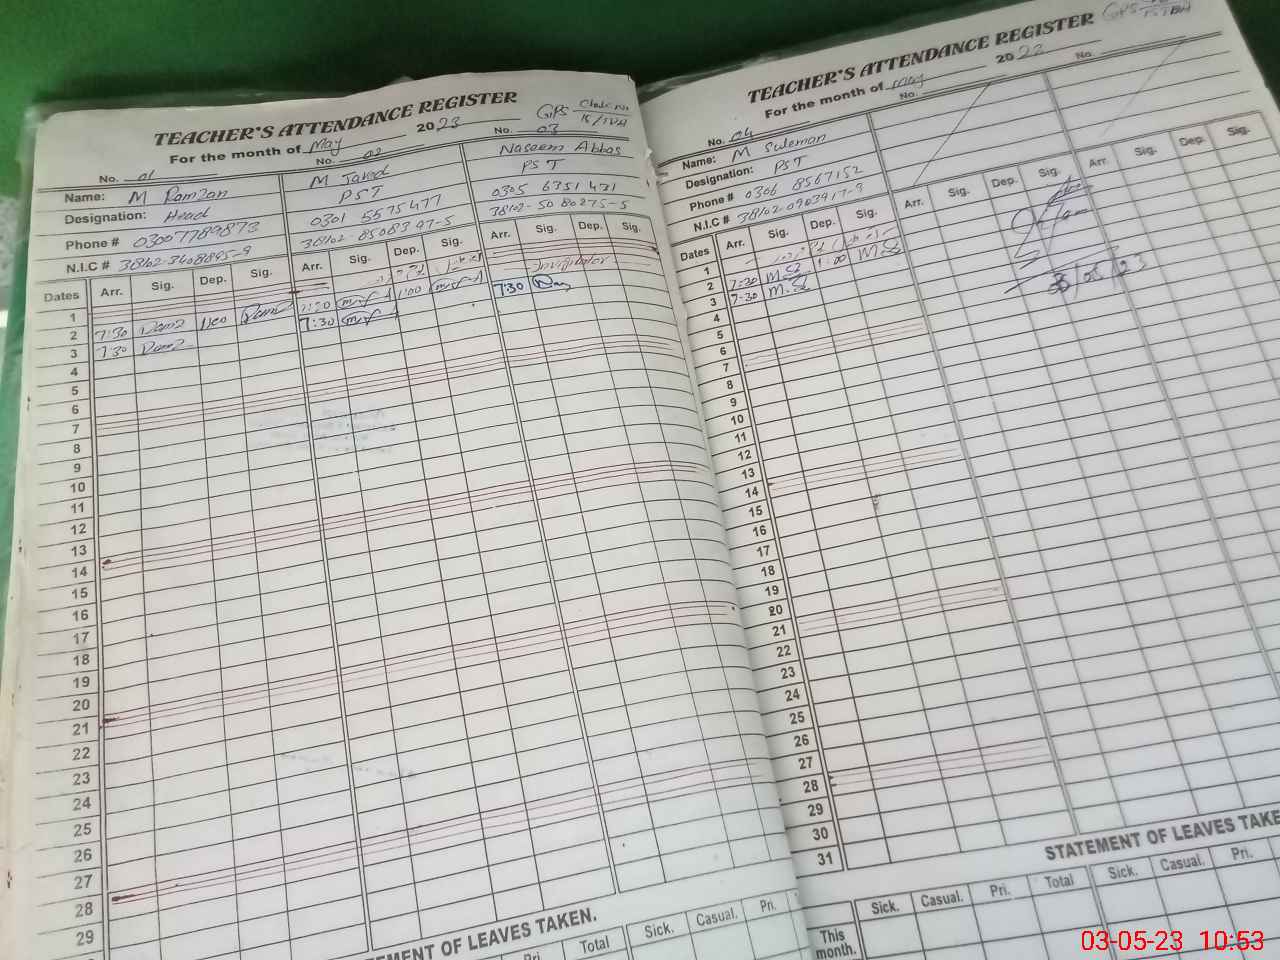 TEACHER'S ATTENDANCE REGISTER
GPS
For the month of May 2023
No. 01 No. 02 No. 03
Name: M Ramzan M Javed Naseem Abbas
Designation: Head PST PST
Phone # 03007789873 0301 5575477 0305 6351471
N.I.C # 38102-3608895-9 38102-8508397-5 38102-5080275-5
Dates Arr. Sig. Dep. Sig. Arr. Sig. Dep. Sig. Arr. Sig. Dep. Sig.
1
2 7:30 Ramz 1:00 Ramz 7:30 1:00 Invigilator
3 7:30 Ramz 7:30 7:30
4
5
6
7
8
9
10
11
12
13
14
15
16
17
18
19
20
21
22
23
24
25
26
27
28
29
STATEMENT OF LEAVES TAKEN.
Pri. Total Sick. Casual. Pri.
TEACHER'S ATTENDANCE REGISTER
GPS
For the month of May 2023
No. 04 No. No.
Name: M Suleman
Designation: PST
Phone # 0306 8567152
N.I.C # 38102-0903917-9
Dates Arr. Sig. Dep. Sig. Arr. Sig. Dep. Sig. Arr. Sig. Dep. Sig.
1
2 7:30 M.S 1:00 M.S
3 7:30 M.S
03/05/23
4
5
6
7
8
9
10
11
12
13
14
15
16
17
18
19
20
21
22
23
24
25
26
27
28
29
30
31
STATEMENT OF LEAVES TAKE
Sick. Casual. Pri. Total Sick. Casual. Pri.
This month.
03-05-23 10:53